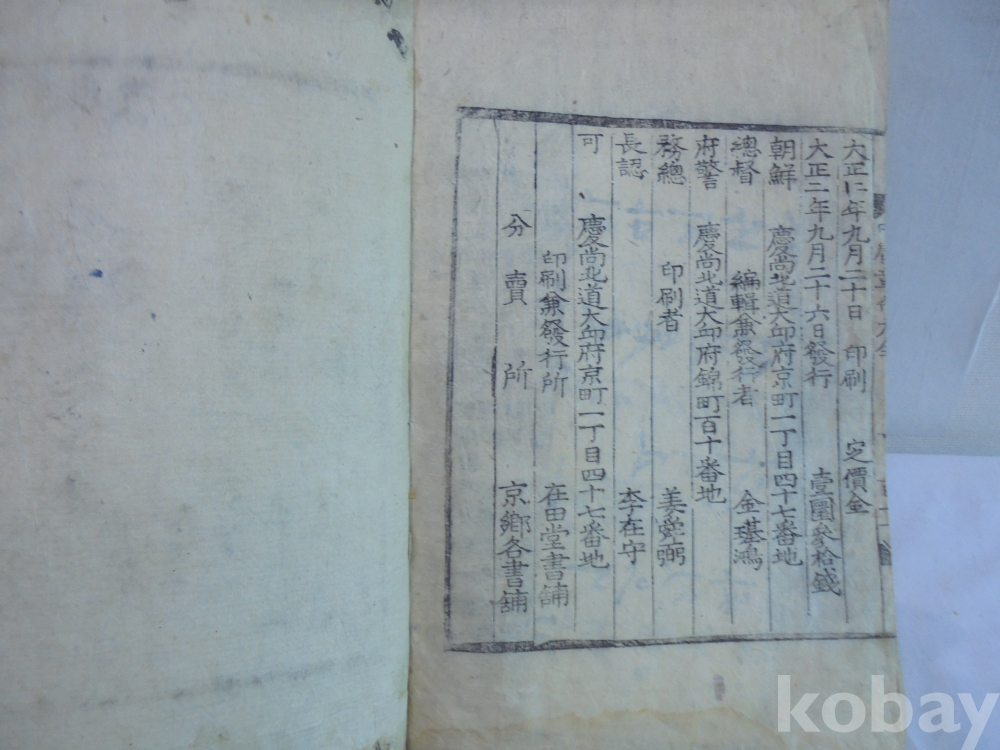 大正二年九月二十日 印刷 定價金
大正二年九月二十六日發行 壹圜參拾錢
朝鮮 慶尚北道大邱府京町一丁目四十七番地
總督 編輯兼發行者 金璂鴻
府警 慶尚北道大邱府錦町百十番地
務總 印刷者 姜愛弼
長認 李在守
可 慶尚北道大邱府京町一丁目四十七番地
印刷兼發行所 在田堂書鋪
分賣所 京鄉各書鋪
kobay